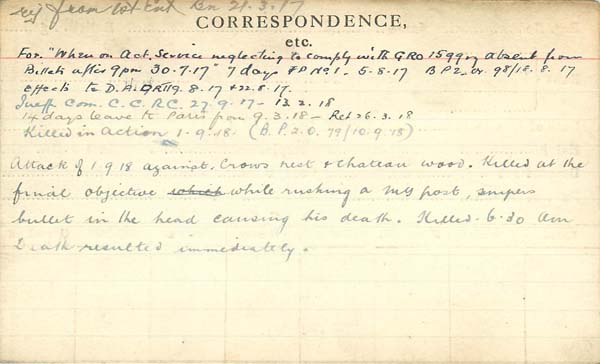 from 1st Ent Bn 21.3.17
CORRESPONDENCE,
etc.
For "When on Act. Service neglecting to comply with GRO 1599 absent from
Billets after 9pm 30-7-17" 7 days FP No 1. 5-8-17 BP2. Or 98/18.8.17
effects to D.A. 9.8.17 + 22.8.17.
Ineff Com. C.C.R.C. 27.9.17 - 13.2.18
14 days leave to Paris from 9.3.18 - Ret 26.3.18
Killed in Action 1-9-18. (B.P.2.O. 79/10.9.18)
Attack of 1 9 18 against. Crows nest & Chateau wood. Killed at the
final objective which while rushing a M.G post, snipers
bullet in the head causing his death. Killed 6-30 am
Death resulted immediately.